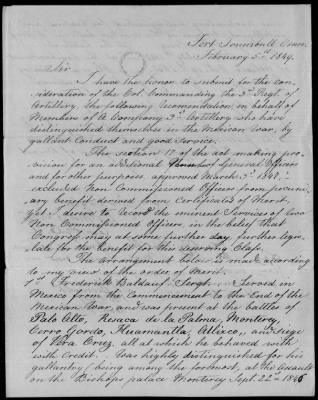 Fort Trumbull Conn.
February 3d 1849.
Sir
I have the honor to submit for the con-
sideration of the Col. Commanding the 3d Regt. of
Artillery, the following recomendation in behalf of
Members of A Company 3d Artillery who have
distinguished themselves in the Mexican War, by
gallant Conduct and good Service.
The section 17 of the act making pro-
vision for an additional of General Officers
and for other purposes, approved March 3d
excluded Non Commissioned Officers from pecuni-
ary benefit derived from Certificates of Merit.
yet I desire to record the eminent Services of two
Non Commissioned Officers, in the belief that
Congress may at some further day further legis-
late for the benefit for this deserving Class.
The arrangement below is made according
to my view of the order of Merit.
1st Frederick Baldauf, Sergt. Served in
Mexico from the Commencement to the End of the
Mexican War, and was present at the battles of
Palo Alto, Resaca de la Palma, Monterey,
Cerro Gordo, Huamantla, Atlixco, and siege
of Vera Cruz, at all which he behaved with
with Credit. Was highly distinguished for his
gallantry, being among the foremost, at the assault
on the Bishops palace Monterey Sept. 22nd 1846